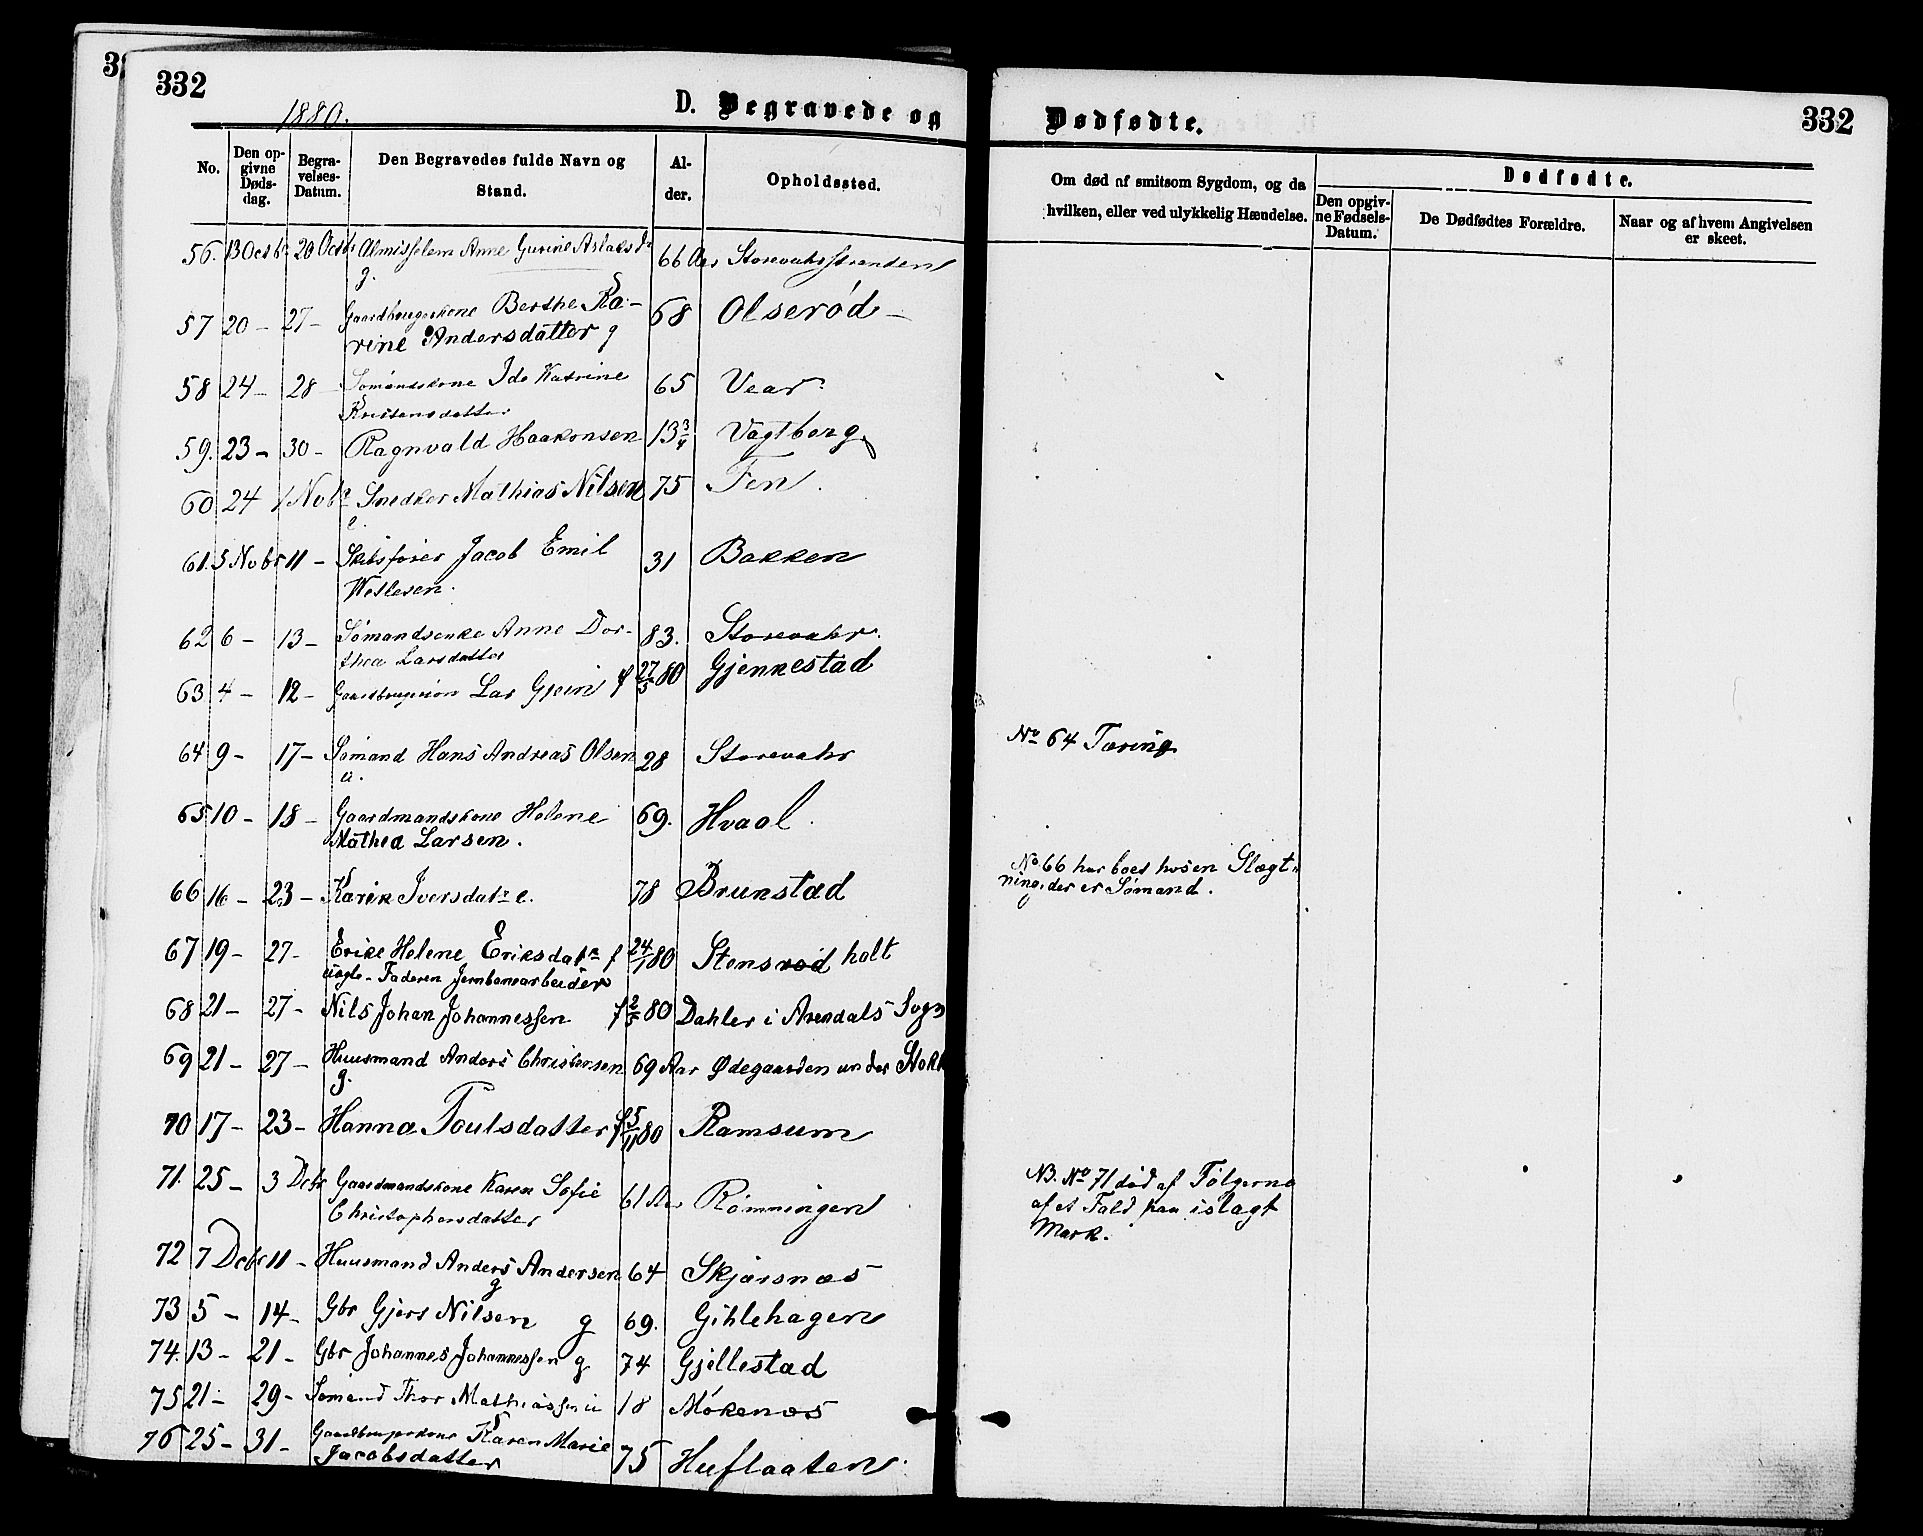 332
1880.
D. Begravede og
No.
Den opgivne Dødsdag.
Begravelses-Datum.
Den Begravedes fulde Navn og Stand.
Alder.
Opholdssted.
56. 13 Octbr 20 Octbr Almisselem Anne Gurine Aslaksdr 66 Aar
g.
57 20 – 27 – Gaardbrugerkone Berthe Ka- 68 Olserød –
rine Andersdatter g
58 24 – 28 – Sømandskone Ida Katrine 65 Vear
Kristensdatter
59. 23 – 30 – Ragnvald Haakonsen 13 3/4 Vagtberg
60 24 1 Nobr Snedker Mathias Nilsen 75 Fen.
e.
61. 5 Nobr 11 – Skibsfører Jacob Emil 31 Bakken
Wetlesen.
62 6 – 13 – Sømandsenke Anne Dor- 83. Storevahr.
thea Larsdatter
63 4 – 12 – Lars f 27/5 80 Gjennestad
64 9 – 17 – Sømand Hans Andreas Olsen 28 Storevahr
u.
65 10 – 18 – Gaardmandskone Helene 69. Hvaal.
Mathea Larsen.
66 16 – 23 – Karen Iversdatr e. 78 Brunstad
67 19 – 27 – Helene Eriksdatr f 24/1 80 Stensholt
uægte – Faderen Jernbanearbeider
68 21 – 27 – Nils Johan Johannessen f 2/5 80 Dahler i Arendals Sogn
69 21 – 27 – Huusmand Anders Christensen 69 Aar Ødegaarden under
g.
70 17 – 23 – Hanna Poulsdatter f 5/11 80 Ramsum
71. 25 – 3 Debr Gaardmandskone Karen Sofie 61 Aar Rømningen
Christophersdatter
72 7 Debr 11 – Huusmand Anders Andersen 64 Skjærsnæs
g
73 5 – 14 – Gbr Gjers Nilsen g 69. Gihlehagen
74. 13 – 21 – Gbr Johannes Johannessen g 74 Gjellestad
75 21 – 29 – Sømand Thor Mathiassen u 18 Møkenæs
76 25 – 31 – Gaardbrugerkone Karen Marie 75 Huflaaten
Jacobsdatter
Dødfødte.
332
Om død af smitsom Sygdom, og da hvilken, eller ved ulykkelig Hændelse.
Dødfødte.
Den opgivne Fødsels-Datum.
De Dødfødtes Forældre.
Naar og af hvem Angivelsen er skeet.
No 64 Tæring
No 66 har boet hos en Slægt-
ning, der er Sømand.
NB. No 71 død af Følgerne
af et Fald paa islagt
Mark.